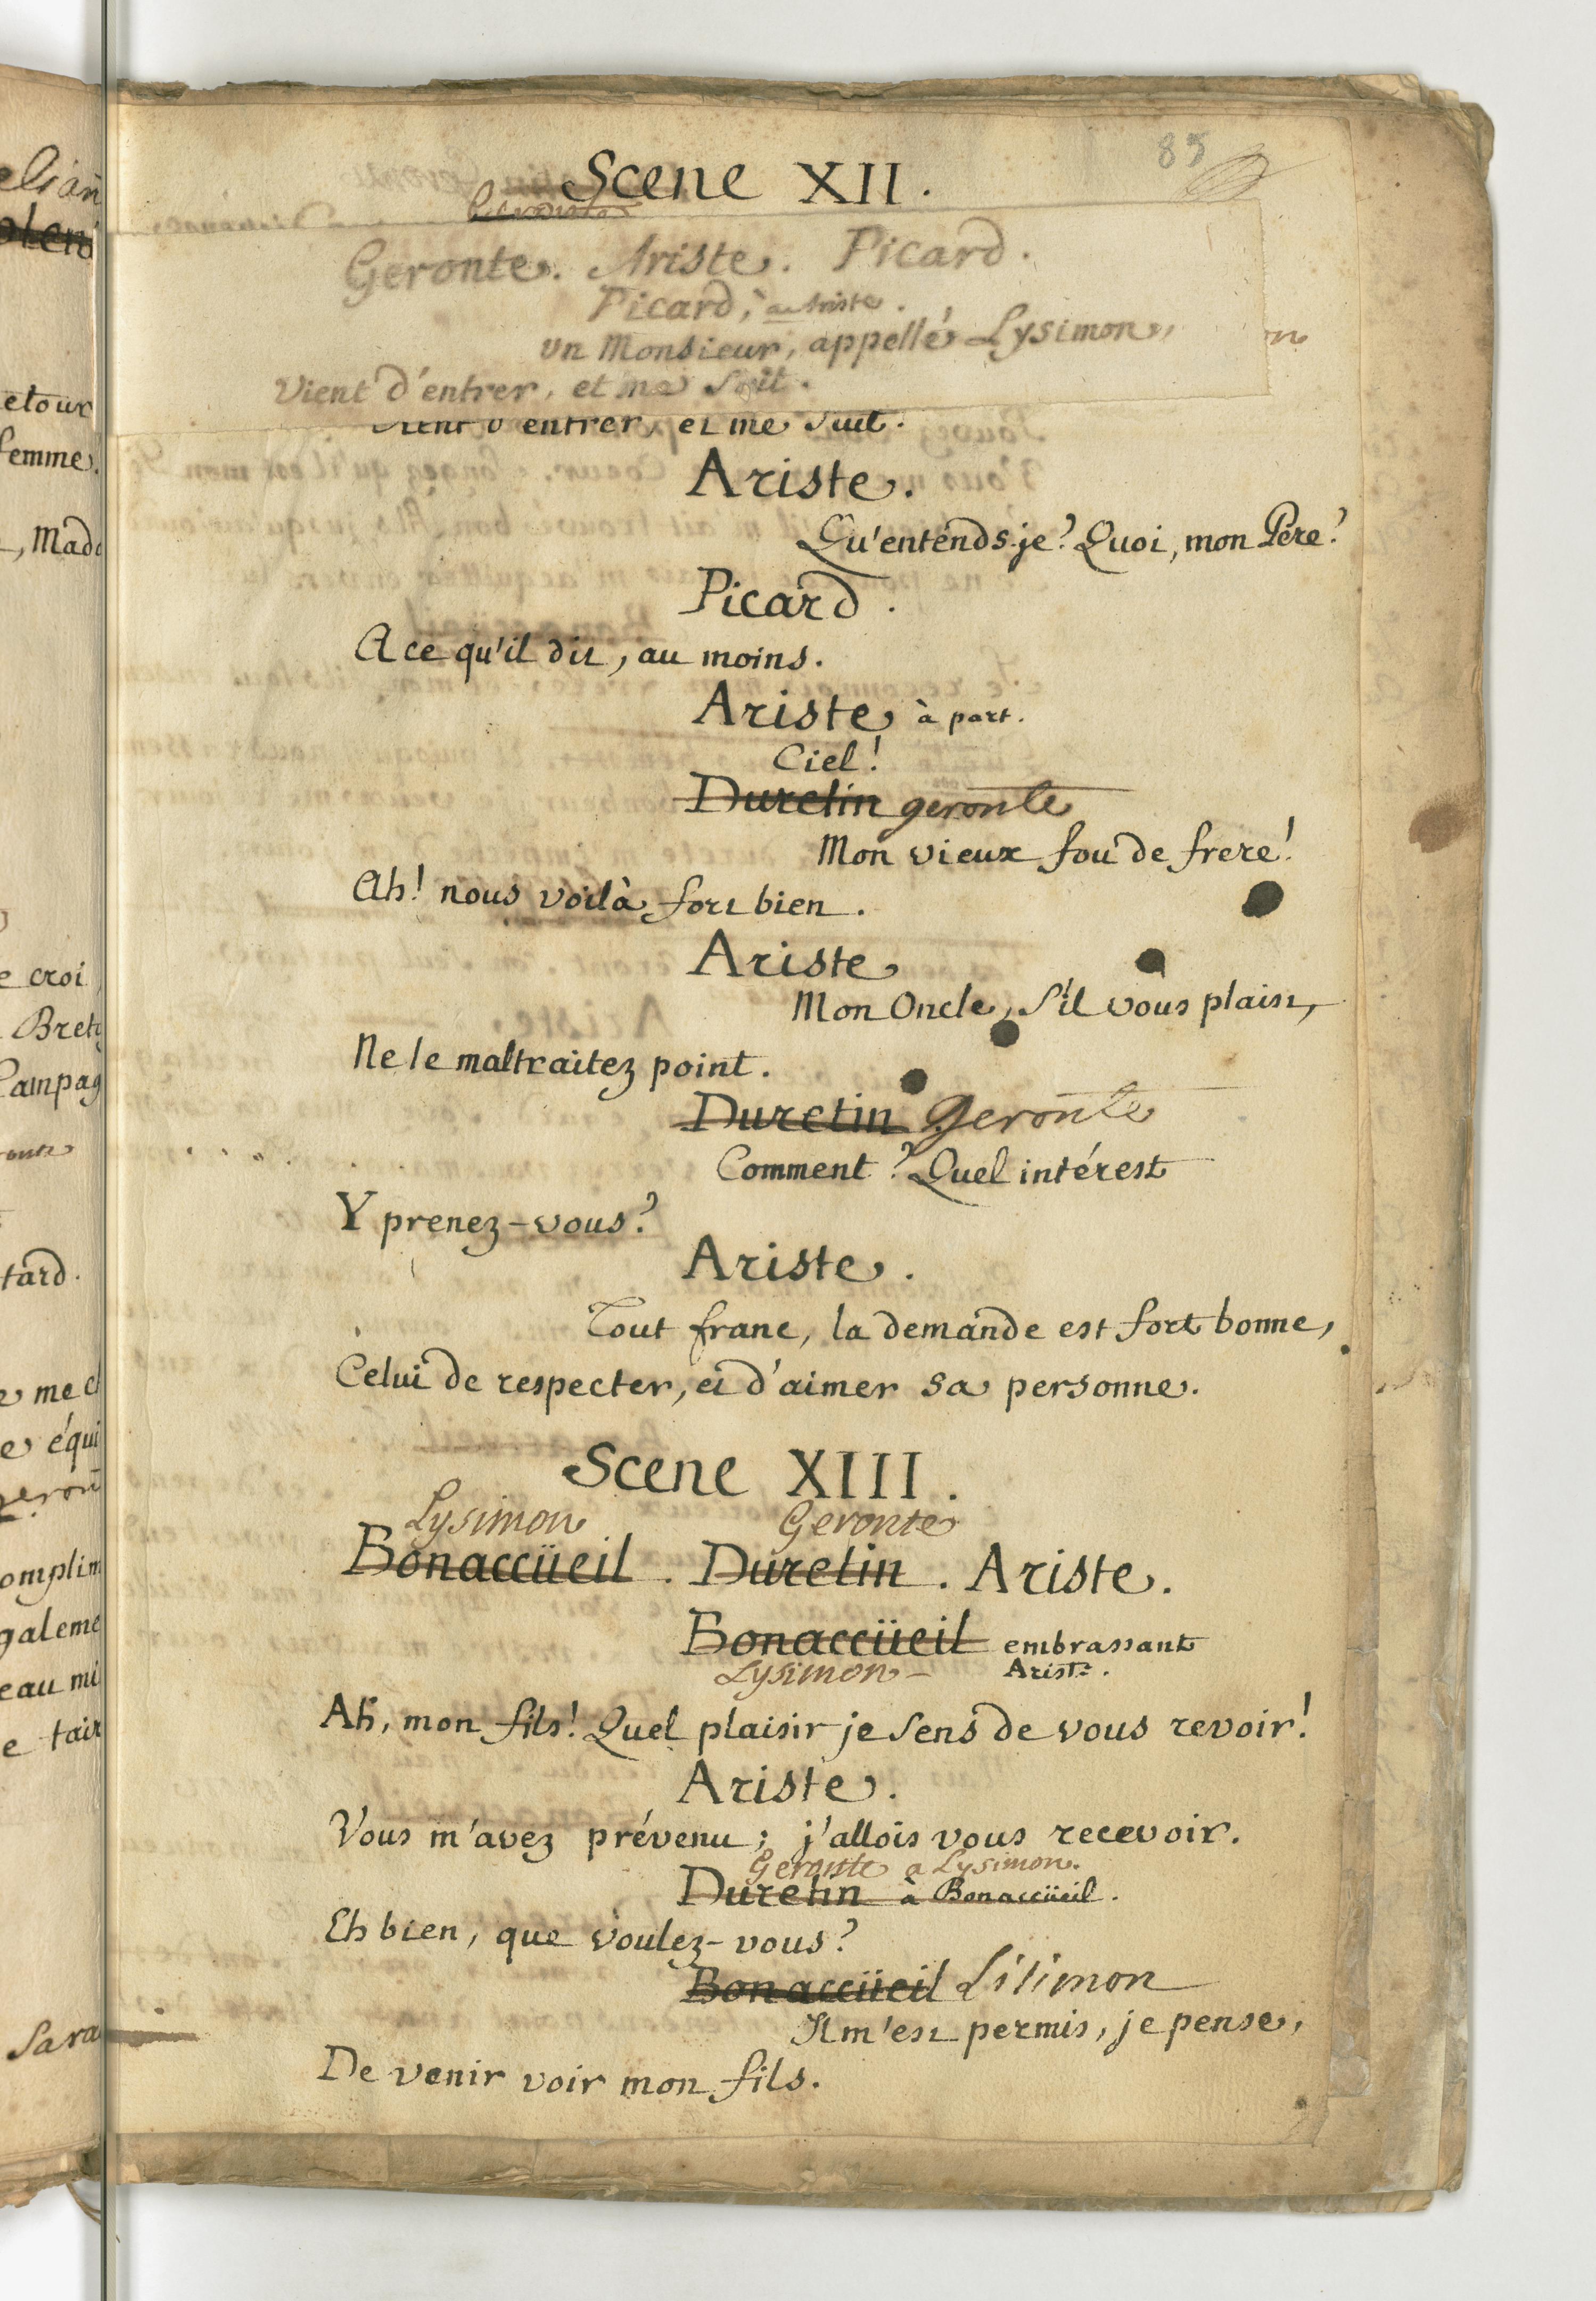 85
Scene XII.
Geronte. Ariste. Picard.
Picard, à Ariste.
un Monsieur, appellé Lysimon,
Vient d'entrer, et me suit.
Vient d'entrer, et me suit.
Ariste.
Qu'entends-je? Quoi, mon Pere?
Picard.
A ce qu'il dit, au moins.
Ariste à part.
Ciel!
Duretin geronte
Mon vieux fou de frere!
Ah! nous voilà fort bien.
Ariste
Mon Oncle, s'il vous plaist,
Ne le maltraitez point.
Duretin Geronte
Comment? Quel intérest
Y prenez-vous?
Ariste.
Tout franc, la demande est fort bonne,
Celui de respecter, et d'aimer sa personne.
Scene XIII.
Lysimon Geronte
Bonaccüeil. Duretin. Ariste.
Bonaccüeil embrassant
Lysimon Ariste.
Ah, mon fils! Quel plaisir je sens de vous revoir!
Ariste.
Vous m'avez prévenu; j'allois vous recevoir.
Geronte a Lysimon.
Duretin à Bonaccüeil.
Eh bien, que voulez-vous?
Bonaccüeil Lisimon
Il m'est permis, je pense,
De venir voir mon fils.